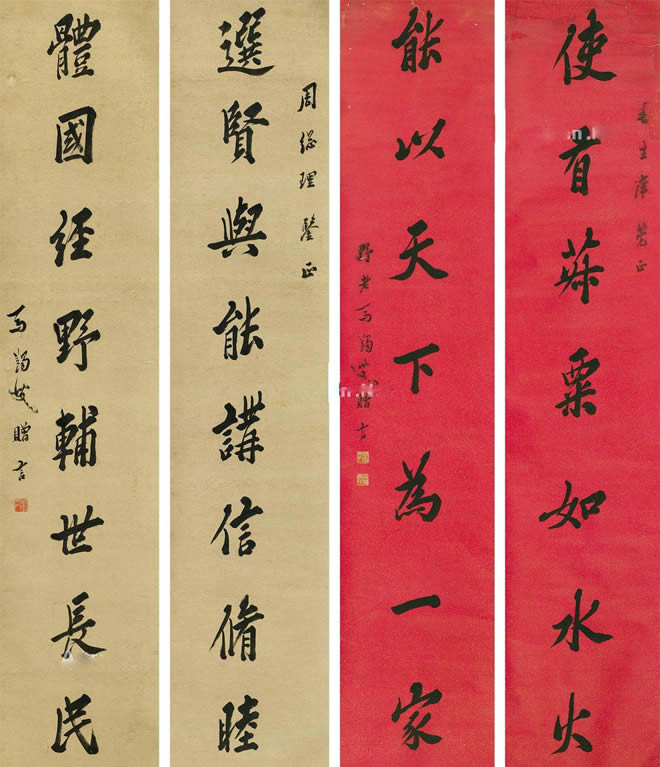 毛主席詧正
使有菽粟如水火
能以天下為一家
野老馬蠲叟贈言
周總理鑒正
選賢與能講信脩睦
體國經野輔世長民
馬蠲叟贈言